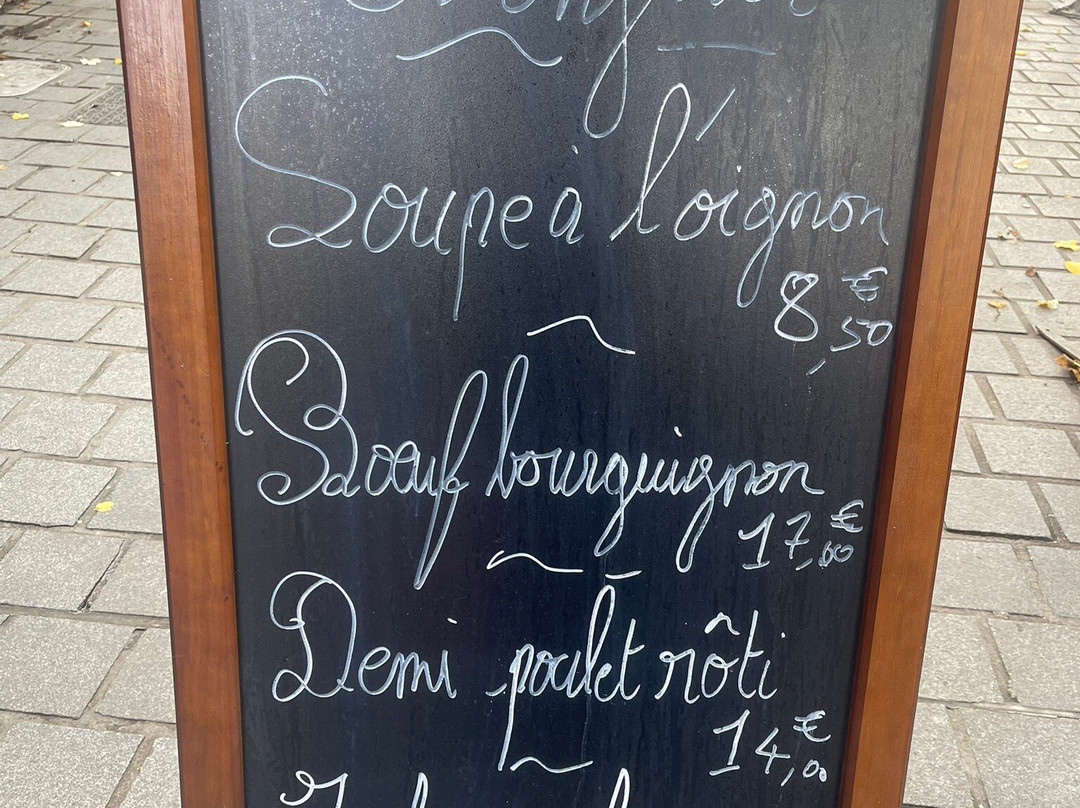 Soupe à l'oignon
8€,50
Bœuf bourguignon
17€,00
Demi poulet rôti
14€,00